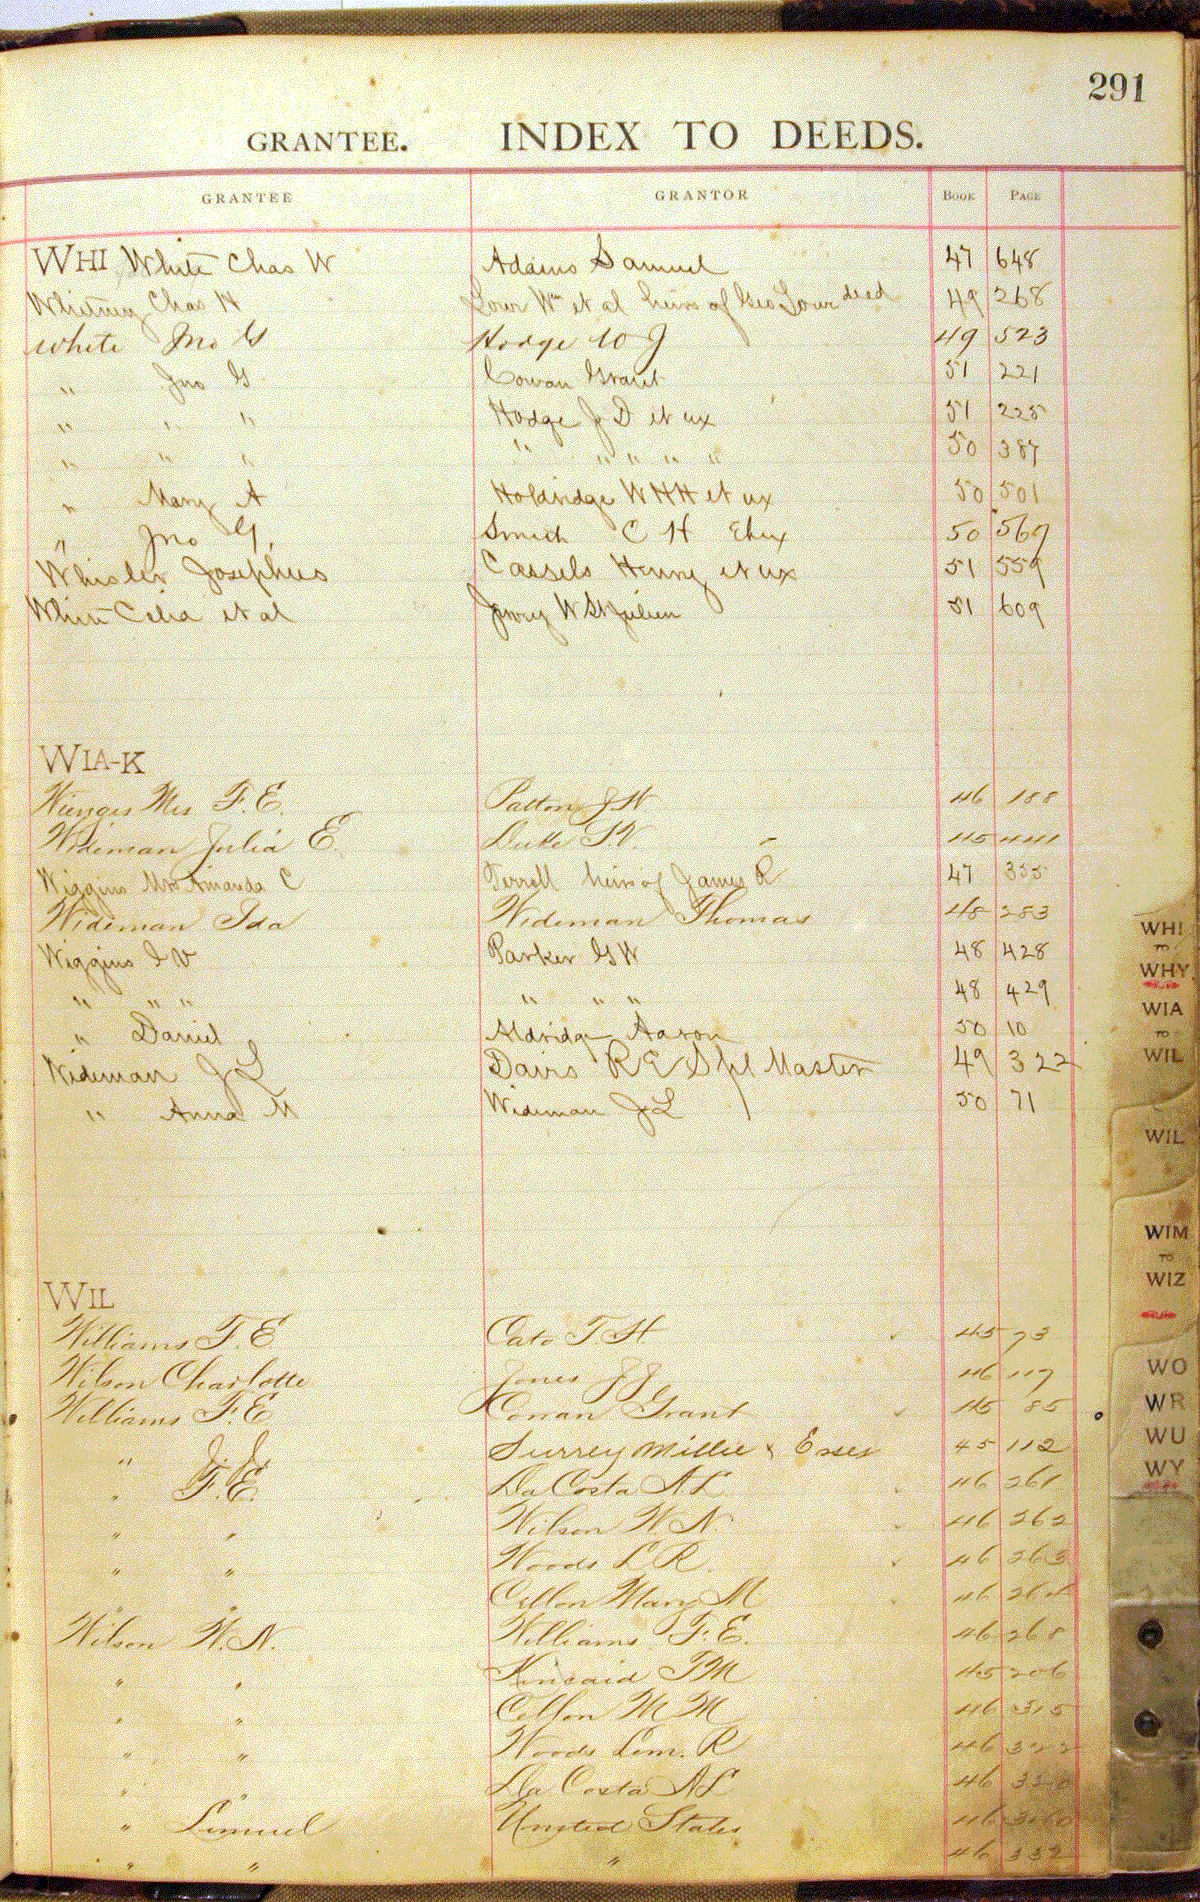 291
GRANTEE. INDEX TO DEEDS.
GRANTEE GRANTOR BOOK PAGE
WHI White Chas W Adams Samuel 47 648
Whitney Chas H Lowr Wm et al heirs of Geo Lowr deed 49 268
White Jno G Hodge W J 49 523
" Jno G Cowan Grant 51 221
" " " Hodge J D et ux 51 225
" " " " " " " " 50 387
" Mary A Holdridge W H H et ux 50 501
" Jno G. Smith C H Etux 50 567
Whisler Josephus Cassels Henry et ux 51 559
White Celia et al Jenry W St Julien 51 609
WIA-K
Wienges Mrs F. E. Patton J H 46 188
Wideman Julia E. Duke 45 441
Wiggins Mrs Amanda C Terrell heirs of James R 47 355
Wideman Ida Wideman Thomas 48 283
Wiggins I V Parker G W 48 428
" " " " " " 48 429
" Daniel Aldridge Aaron 50 10
Wideman J L Davis R E Spl Master 49 322
" Anna M Wideman J L 50 71
WIL
Williams F. E. Cato T. H 45 73
Wilson Charlotte Jones J J 46 117
Williams F. E. Cowan Grant 45 85
" J. J. Surrey Millie & Essex 45 112
" F. E. Da Costa A. L. 46 261
" " Wilson W. N. 46 262
" " Woods L. R. 46 263
" " Cellon Mary M 46
Wilson W. N. Williams F. E. 46 268
" " Kincaid T M 45 206
" " Cellon M M 46 315
" " Woods Lem. R 46 322
" " Da Costa A L 46
" Limuel United States 46
" " " 46 332
WHI
TO
WHY
WIA
TO
WIL
WIL
WIM
TO
WIZ
WO
WR
WU
WY